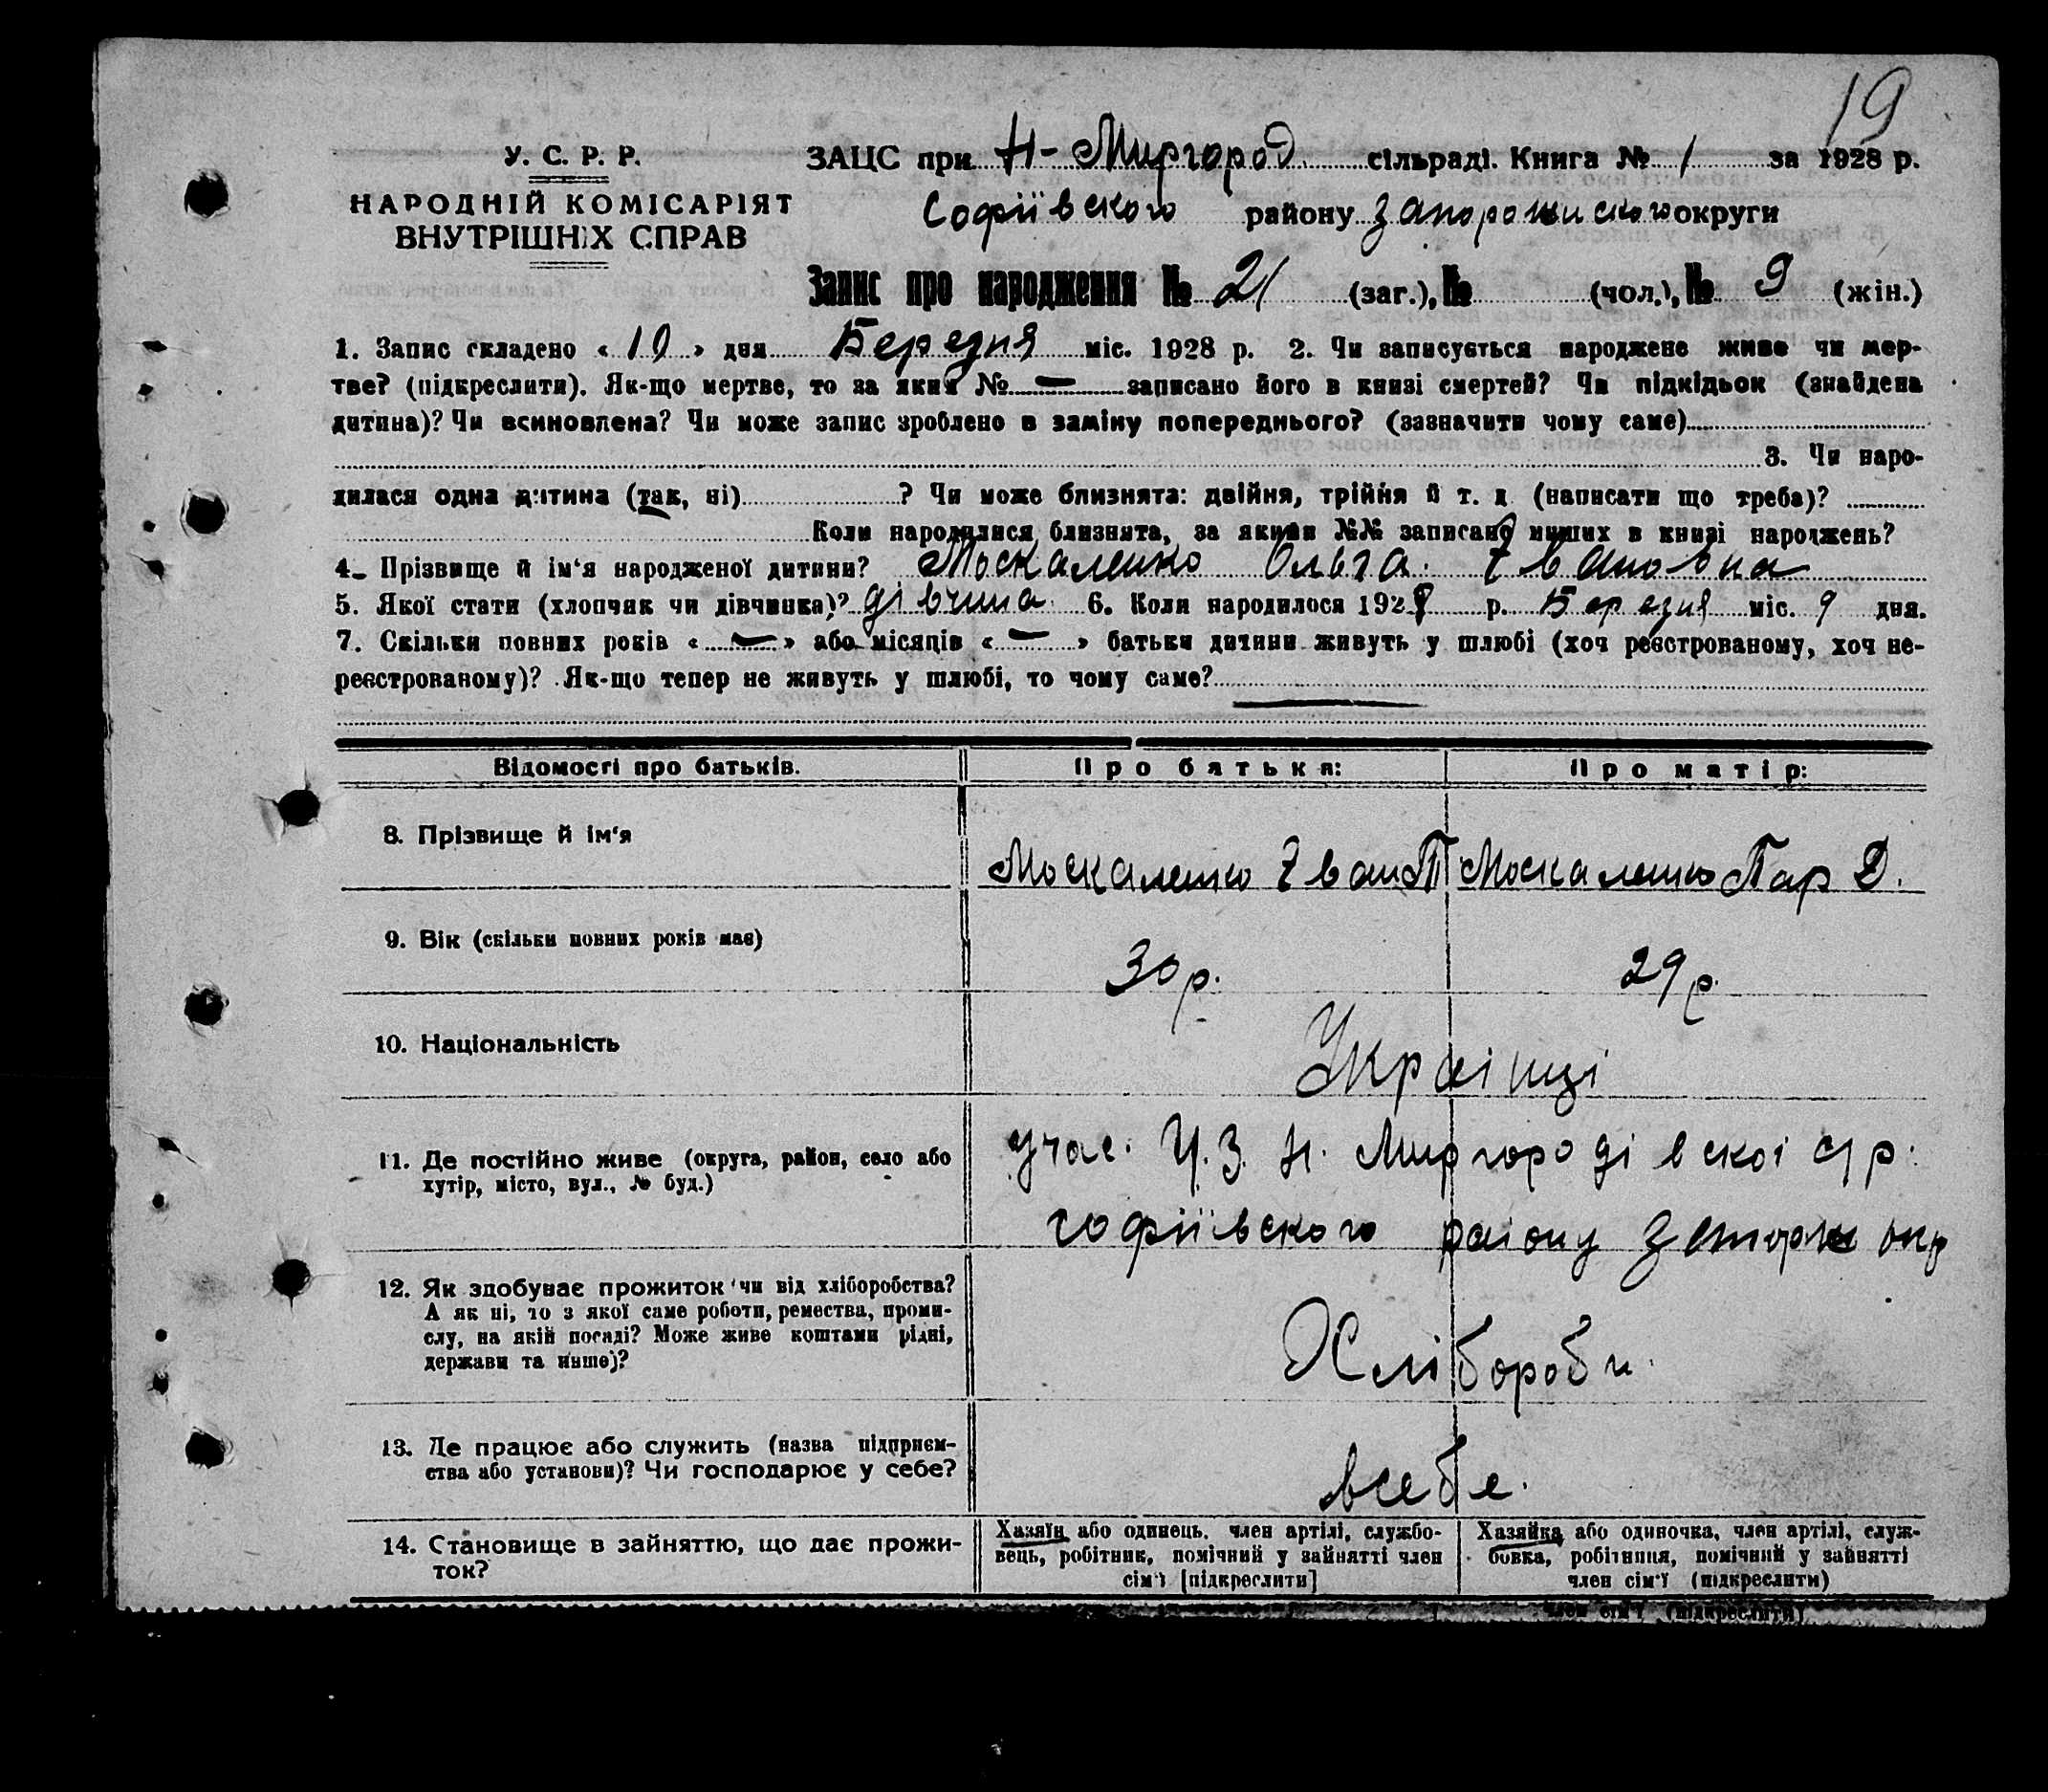 19
У. С. Р. Р.
НАРОДНІЙ КОМІСАРІЯТ
ВНУТРІШНІХ СПРАВ
ЗАЦС при Н-Миргород сільраді. Книга № 1 за 1928 р.
Софіївского району Запорожиского округи
Запис про народження № 21 (заг.), № (чол.), № 9 (жін.)
1. Запис складено « 10 » дня Березня міс. 1928 р. 2. Чи записується народжене живе чи мер-
тве? (підкреслити). Як-що мертве, то за яким № — записано його в книзі смертей? Чи підкідьок (знайдена
дитина)? Чи всиновлена? Чи може запис зроблено в заміну попереднього? (зазначити чому саме)
3. Чи наро-
дилася одна дитина (так, ні) ? Чи може близнята: двійня, трійня й т. д (написати що треба)?
Коли народилися близнята, за якими №№ записано инших в книзі народжень?
4. Прізвище й ім'я народженої дитини? Москаленко Ольга Івановна
5. Якої стати (хлопчик чи дівчинка)? дівчина 6. Коли народилося 1928 р. Березня міс. 9 дня.
7. Скільки повних років « — » або місяців « — » батьки дитини живуть у шлюбі (хоч реєстрованому, хоч не-
реєстрованому)? Як-що тепер не живуть у шлюбі, то чому саме?
Відомості про батьків. Про батька: Про матір:
8. Прізвище й ім'я Москаленко Іван П Москаленко Пар Д.
9. Вік (скільки повних років має) 30 р. 29 р.
10. Національність Українці
11. Де постійно живе (округа, район, село або
хутір, місто, вул., № буд.)
учас. Ч. З. Н. Миргородівскоі с/р.
софіівского району Запорж окр
12. Як здобуває прожиток чи від хліборобства?
А як ні, то з якої саме роботи, ремества, проми-
слу, на якій посаді? Може живе коштами рідні,
держави та инше)?
Хлібороби.
13. Де працює або служить (назва підприєм-
ства або установи)? Чи господарює у себе?
всебе.
14. Становище в зайняттю, що дає прожи-
ток?
Хазяїн або одинець, член артілі, службо-
вець, робітник, помічний у зайнятті член
сім'ї [підкреслити]
Хазяйка або одиночка, член артілі, служ-
бовка, робітниця, помічний у зайнятті
член сім'ї (підкреслити)
член сім'ї (підкреслити)